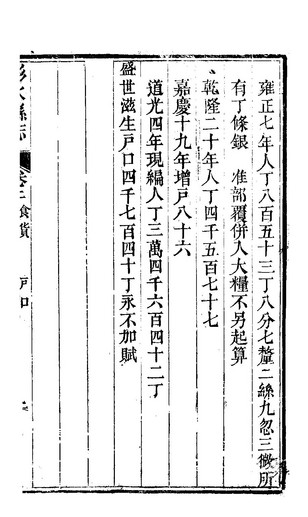 雍正七年人丁八百五十三丁八分七釐二絲九忽三微所
有丁條銀 准部覆併人大糧不另起算
乾隆二十年人丁四千五百七十七
嘉慶十九年增戸八十六
道光四年現編人丁三萬四千六百四十二丁
盛世滋生戸口四千七百四十丁永不加賦
彭水縣志
卷二 食貨 戸口